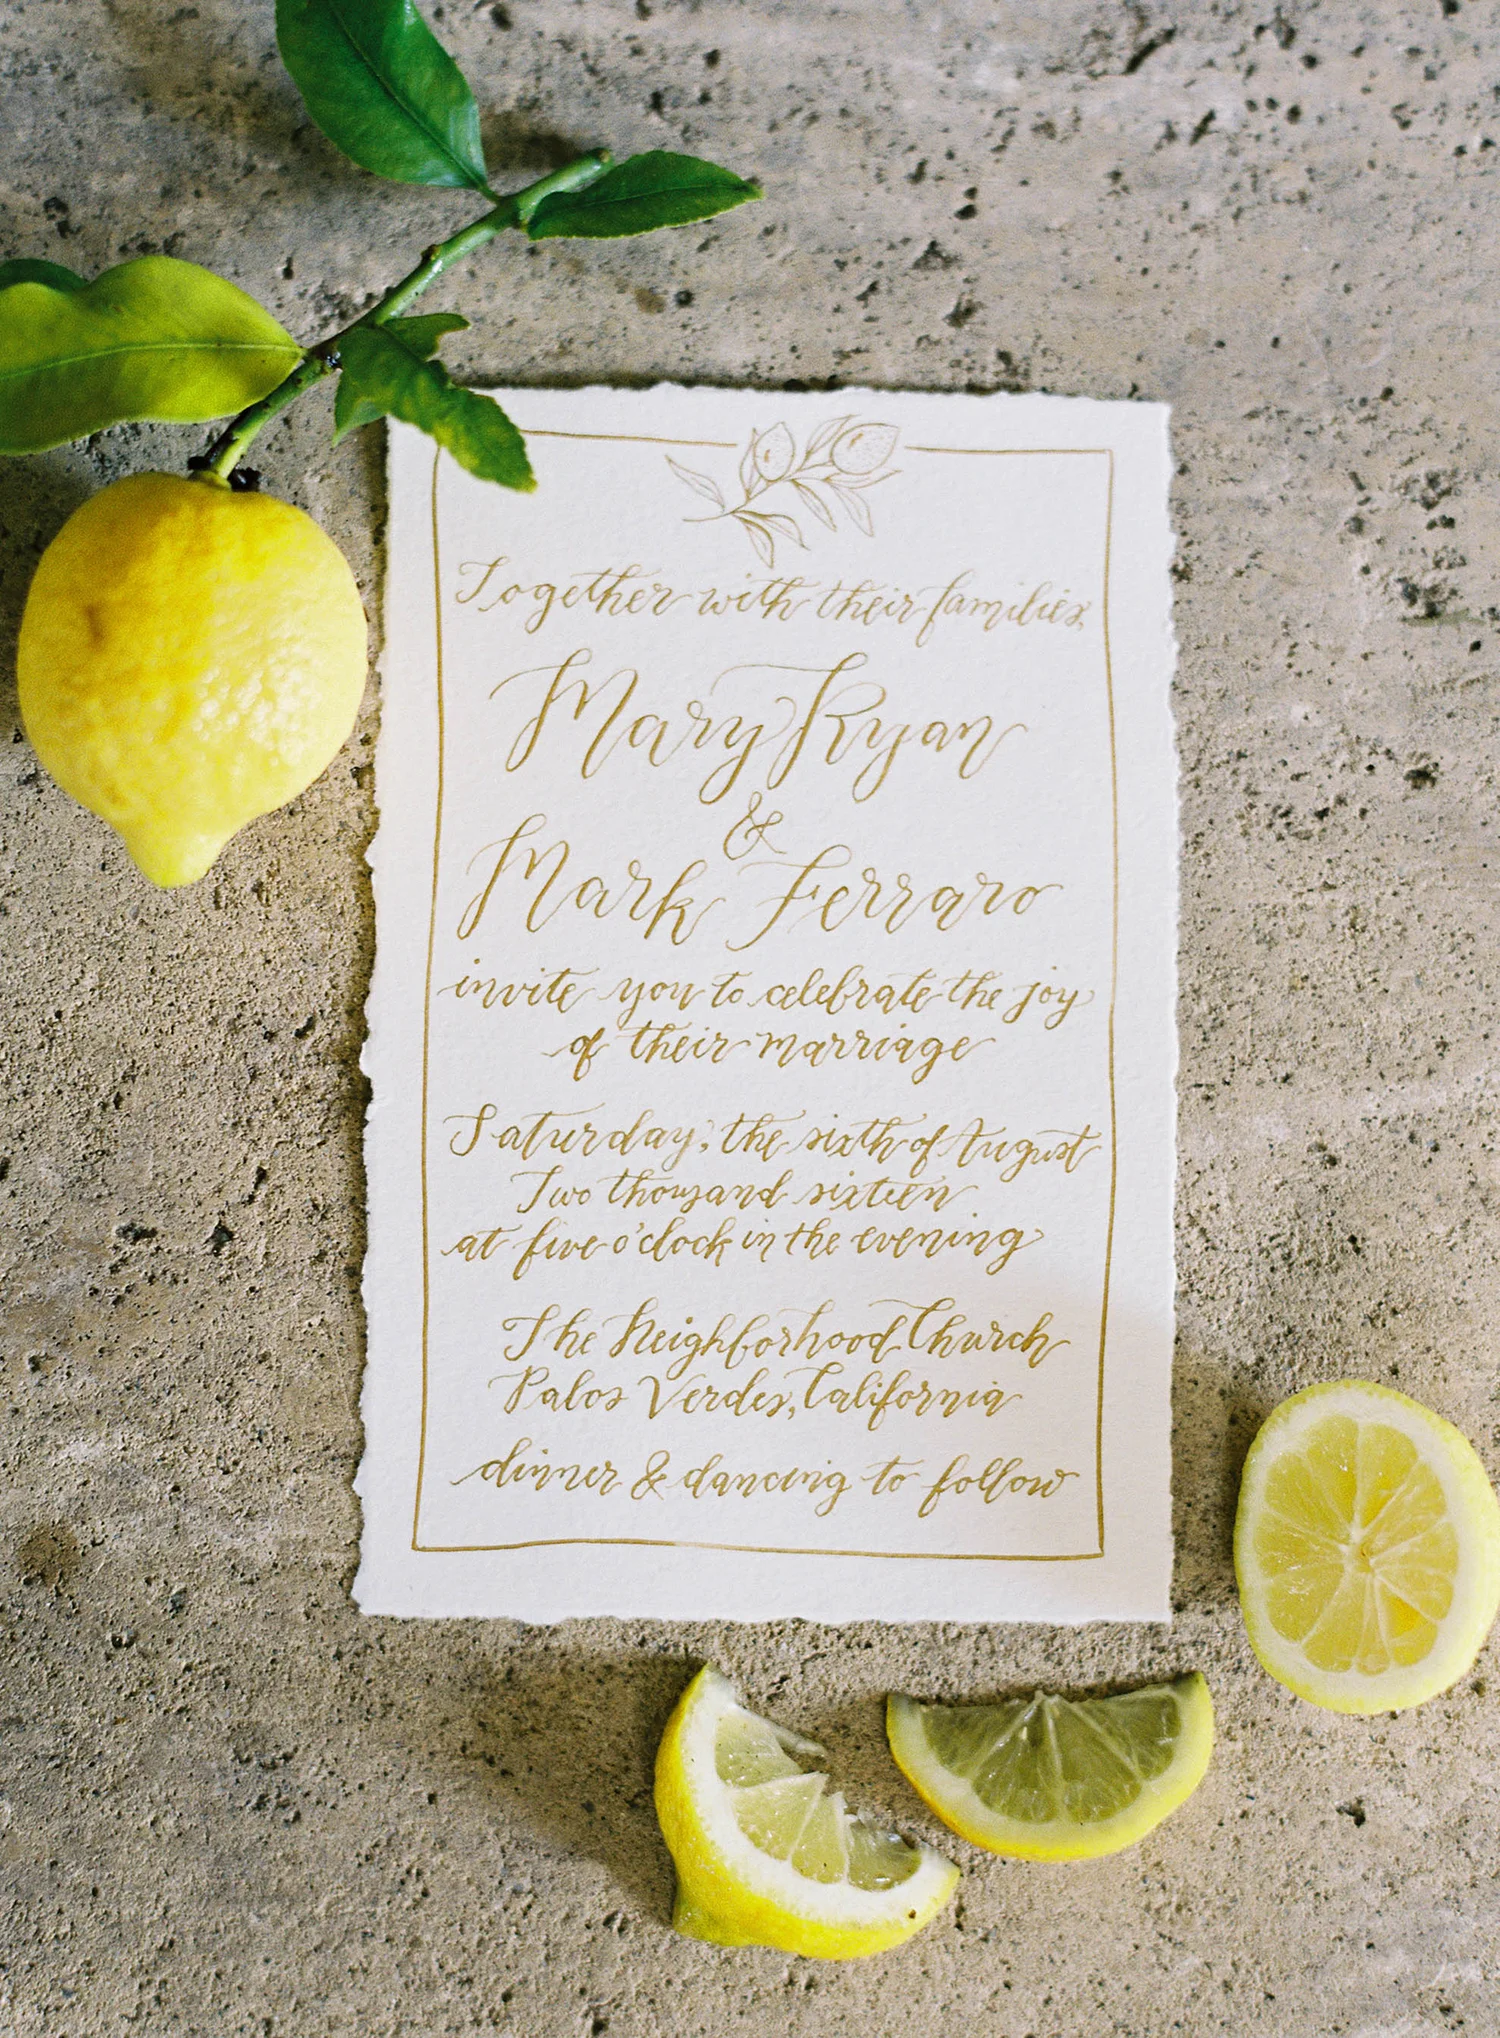 Together with their families,
Mary Ryan
&
Mark Ferraro
invite you to celebrate the joy
of their marriage
Saturday, the sixth of August
Two thousand sixteen
at five o'clock in the evening
The Neighborhood Church
Palos Verdes, California
dinner & dancing to follow